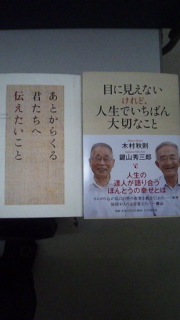 あとからくる
君たちへ
伝えたいこと
目に見えない
けれど、
人生でいちばん
大切なこと
木村秋則
鍵山秀三郎
人生の
達人が語り合う
ほんとうの幸せとは